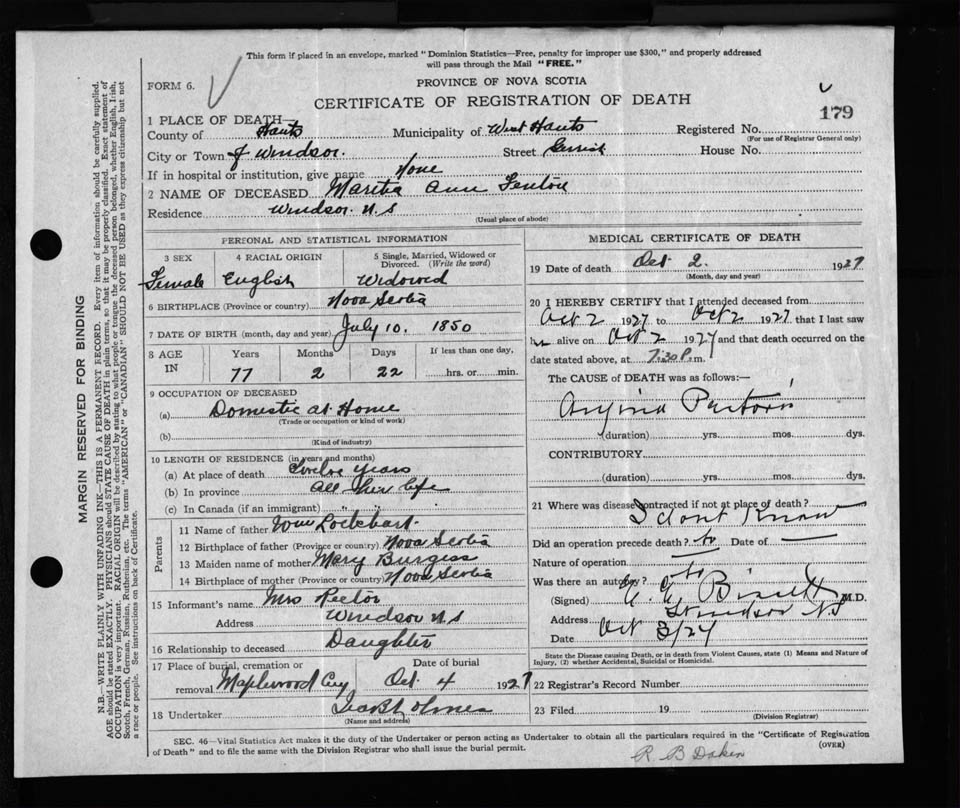 This form if placed in an envelope, marked "Dominion Statistics—Free, penalty for improper use $300," and properly addressed
will pass through the Mail "FREE."
FORM 6.
PROVINCE OF NOVA SCOTIA
CERTIFICATE OF REGISTRATION OF DEATH
179
1 PLACE OF DEATH—
County of Hants Municipality of West Hants Registered No.
(For use of Registrar General only)
City or Town of Windsor. Street Gerrish House No.
If in hospital or institution, give name None
2 NAME OF DECEASED Ann
Residence Windsor. N.S
(Usual place of abode)
PERSONAL AND STATISTICAL INFORMATION
3 SEX 4 RACIAL ORIGIN 5 Single, Married, Widowed or Divorced. (Write the word)
Female English Widowed
6 BIRTHPLACE (Province or country) Nova Scotia
7 DATE OF BIRTH (month, day and year) July 10. 1850
8 AGE IN Years Months Days If less than one day,
77 2 22 hrs. or min.
9 OCCUPATION OF DECEASED
(a) Domestic at Home
(Trade or occupation or kind of work)
(b)
(Kind of industry)
10 LENGTH OF RESIDENCE (in years and months)
(a) At place of death Twelve years
(b) In province All her life
(c) In Canada (if an immigrant)
Parents
11 Name of father Wm Lockhart
12 Birthplace of father (Province or country) Nova Scotia
13 Maiden name of mother Mary Burgess
14 Birthplace of mother (Province or country) Nova Scotia
15 Informant's name Mrs Rector
Address Windsor N.S
16 Relationship to deceased Daughter
17 Place of burial, cremation or removal Maplewood Cey
Date of burial Oct. 4 1927
18 Undertaker
(Name and address)
MEDICAL CERTIFICATE OF DEATH
19 Date of death Oct 2. 1927
(Month, day and year)
20 I HEREBY CERTIFY that I attended deceased from
Oct 2 1927 to Oct 2 1927 that I last saw
her alive on Oct 2 1927 and that death occurred on the
date stated above, at 7:30 P.m.
The CAUSE OF DEATH was as follows:—
Angina Pectoris
(duration) yrs. mos. dys.
CONTRIBUTORY
(duration) yrs. mos. dys.
21 Where was disease contracted if not at place of death?
I dont Know
Did an operation precede death? no Date of —
Nature of operation —
Was there an autopsy? no
(Signed) M.D.
Address Windsor N.S
Date Oct 3/27
State the Disease causing Death, or in death from Violent Causes, state (1) Means and Nature of
Injury, (2) whether Accidental, Suicidal or Homicidal.
22 Registrar's Record Number
23 Filed 19
(Division Registrar)
SEC. 46—Vital Statistics Act makes it the duty of the Undertaker or person acting as Undertaker to obtain all the particulars required in the "Certificate of Registration
of Death" and to file the same with the Division Registrar who shall issue the burial permit.
(OVER)
R. B Dakin
MARGIN RESERVED FOR BINDING
N.B.—WRITE PLAINLY WITH UNFADING INK—THIS IS A PERMANENT RECORD. Every item of information should be carefully supplied.
AGE should be stated EXACTLY. PHYSICIANS should STATE CAUSE OF DEATH in plain terms, so that it may be properly classified. Exact statement of
OCCUPATION is very important. RACIAL ORIGIN will be described by stating to what people or tongue the deceased person belonged, whether English, Irish,
Scotch, French, German, Russian, Ruthenian, etc. The terms "AMERICAN" or "CANADIAN" SHOULD NOT BE USED as they express citizenship but not
a race or people. See instructions on back of Certificate.